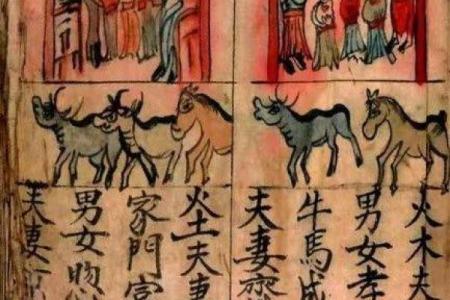 火木夫
男女孝
牛馬成
夫妻齊
火土夫妻
家門富
男女
夫妻